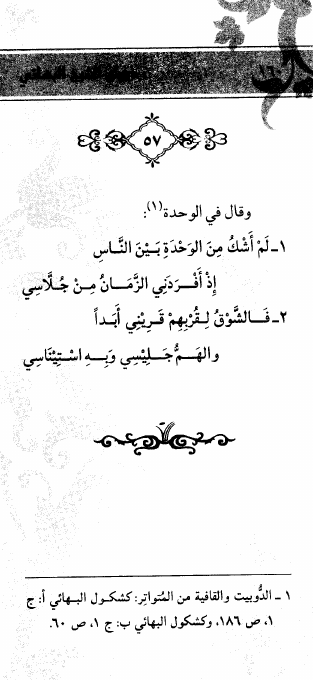 ٥٧
وقال في الوحدة(١):
١ـ لَمْ أَشْكُ مِنَ الوَحْدَةِ بَيْنَ النَّاسِ
إِذْ أَفْـرَدَنِي الزَّمَـانُ مِـنْ جُـلَّاسِي
٢ـ فَـالشَّوْقُ لِـقُرْبِهِمْ قَـرِيْنِي أَبَـداً
والهَـمُّ جَلِـيْسِي وَبِـهِ اسْـتِيْنَاسِي
١ ـ الدُّوبيت والقافية من المُتواتِر: كشكـول البـهائي أ: ج
١، ص ١٨٦، وكشكول البهائي ب: ج ١، ص ٦٠.